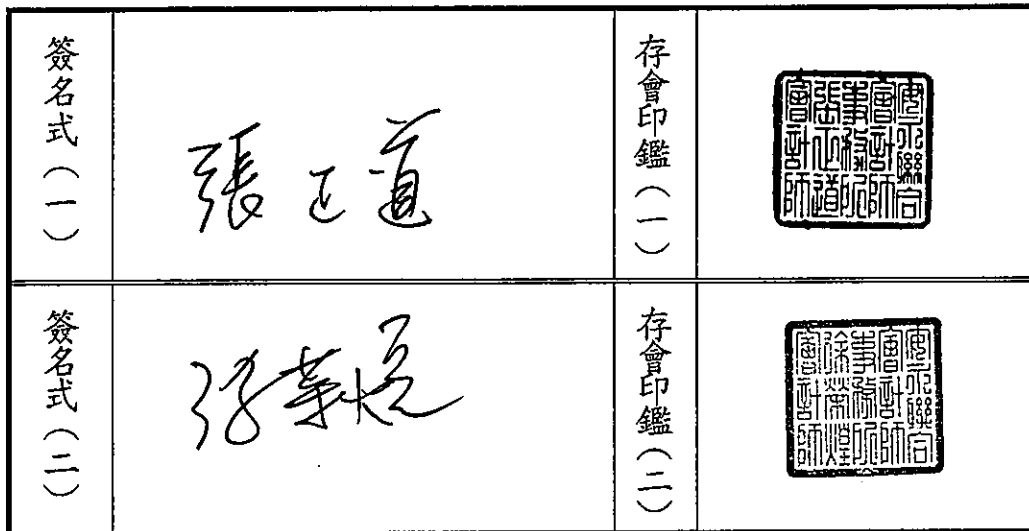 簽名式(一)
張正道
存會印鑑(一)
安永聯合
會計師
事務所
張正道
會計師
簽名式(二)
徐榮煌
存會印鑑(二)
安永聯合
會計師
事務所
徐榮煌
會計師